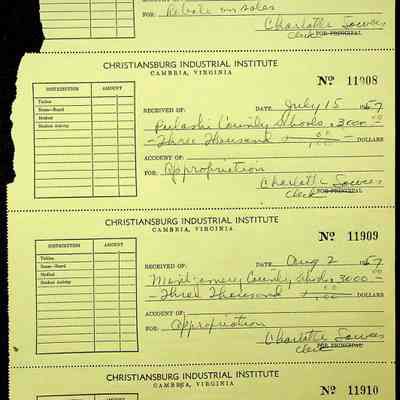 FOR: Rebate on sales
Charlotte Sowers
Clerk FOR PRINCIPAL
CHRISTIANSBURG INDUSTRIAL INSTITUTE
CAMBRIA, VIRGINIA
No 11908
DISTRIBUTION AMOUNT
RECEIVED OF: DATE July 15 1957
Tuition
Room—Board
Medical
Student Activity
Pulaski County Schools $3000 00
—Three Thousand DOLLARS
ACCOUNT OF:
FOR: Appropriation
Charlotte Sowers
Clerk FOR PRINCIPAL
CHRISTIANSBURG INDUSTRIAL INSTITUTE
CAMBRIA, VIRGINIA
No 11909
DISTRIBUTION AMOUNT
RECEIVED OF: DATE Aug 2 1957
Tuition
Room—Board
Medical
Student Activity
Montgomery County Schools $3000 00
—Three Thousand DOLLARS
ACCOUNT OF:
FOR: Appropriation
Charlotte Sowers
Clerk FOR PRINCIPAL
CHRISTIANSBURG INDUSTRIAL INSTITUTE
CAMBRIA, VIRGINIA
No 11910
DISTRIBUTION AMOUNT